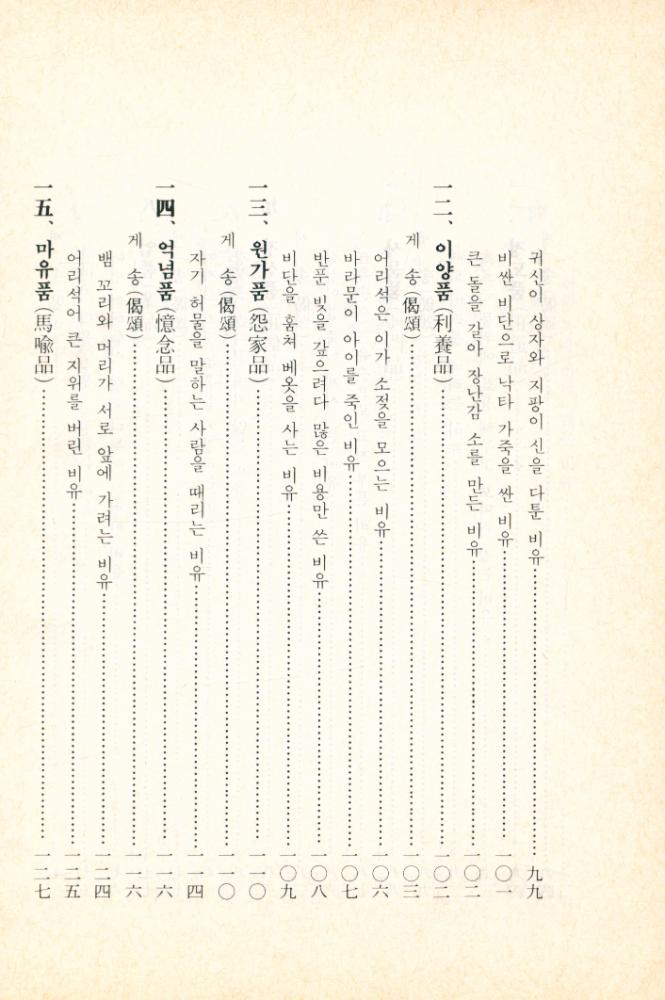 귀신이 상자와 지팡이 신을 다툰 비유……九九
비싼 비단으로 낙타 가죽을 싼 비유……一〇一
큰 돌을 갈아 장난감 소를 만든 비유……一〇二
一二、이양품(利養品)……一〇二
게 송(偈頌)……一〇三
어리석은 이가 소젖을 모으는 비유……一〇六
바라문이 아이를 죽인 비유……一〇七
반푼 빚을 갚으려다 많은 비용만 쓴 비유……一〇八
비단을 훔쳐 베옷을 사는 비유……一〇九
一三、원가품(怨家品)……一一〇
게 송(偈頌)……一一〇
자기 허물을 말하는 사람을 때리는 비유……一一四
一四、억념품(憶念品)……一一六
게 송(偈頌)……一一六
뱀 꼬리와 머리가 서로 앞에 가려는 비유……一二四
어리석어 큰 지위를 버린 비유……一二五
一五、마유품(馬喩品)……一二七